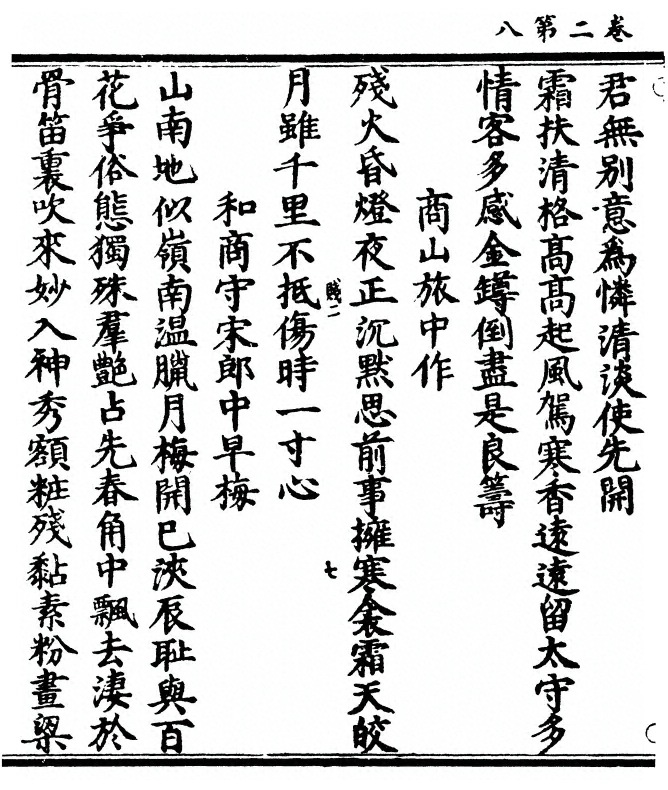 卷二第八
君無別意爲憐清談使先開
霜扶清格髙髙起風駕寒香遠遠留太守多
情客多感金罇倒盡是良籌
商山旅中作
殘火昏燈夜正沉默思前事擁寒衾霜天皎
月雖千里不抵傷時一寸心
賤二
七
和商守宋郎中早梅
山南地似嶺南溫臘月梅開已浹辰恥與百
花爭俗態獨殊羣艷占先春角中飄去淒於
骨笛裏吹來妙入神秀額粧殘黏素粉畫梁